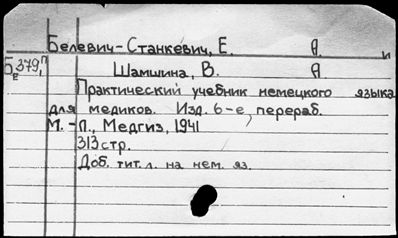 Белевич-Станкевич, Е. А. и
Бе 379, п Шамшина, В. А.
Практический учебник немецкого языка
для медиков. Изд. 6-е, перераб.
М.-Л., Медгиз, 1941
313 стр.
Доб. тит. л. на нем. яз.